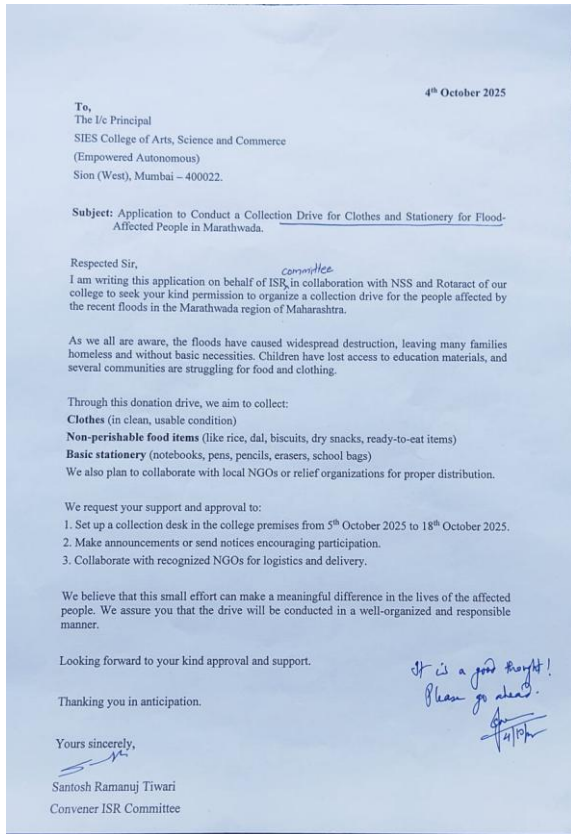 4th October 2025
To,
The I/c Principal
SIES College of Arts, Science and Commerce
(Empowered Autonomous)
Sion (West), Mumbai – 400022.
Subject: Application to Conduct a Collection Drive for Clothes and Stationery for Flood-
Affected People in Marathwada.
Respected Sir,
committee
I am writing this application on behalf of ISR, in collaboration with NSS and Rotaract of our
college to seek your kind permission to organize a collection drive for the people affected by
the recent floods in the Marathwada region of Maharashtra.
As we all are aware, the floods have caused widespread destruction, leaving many families
homeless and without basic necessities. Children have lost access to education materials, and
several communities are struggling for food and clothing.
Through this donation drive, we aim to collect:
Clothes (in clean, usable condition)
Non-perishable food items (like rice, dal, biscuits, dry snacks, ready-to-eat items)
Basic stationery (notebooks, pens, pencils, erasers, school bags)
We also plan to collaborate with local NGOs or relief organizations for proper distribution.
We request your support and approval to:
1. Set up a collection desk in the college premises from 5th October 2025 to 18th October 2025.
2. Make announcements or send notices encouraging participation.
3. Collaborate with recognized NGOs for logistics and delivery.
We believe that this small effort can make a meaningful difference in the lives of the affected
people. We assure you that the drive will be conducted in a well-organized and responsible
manner.
Looking forward to your kind approval and support.
It is a good thought!
Please go ahead.
Thanking you in anticipation.
Yours sincerely,
Santosh Ramanuj Tiwari
Convener ISR Committee